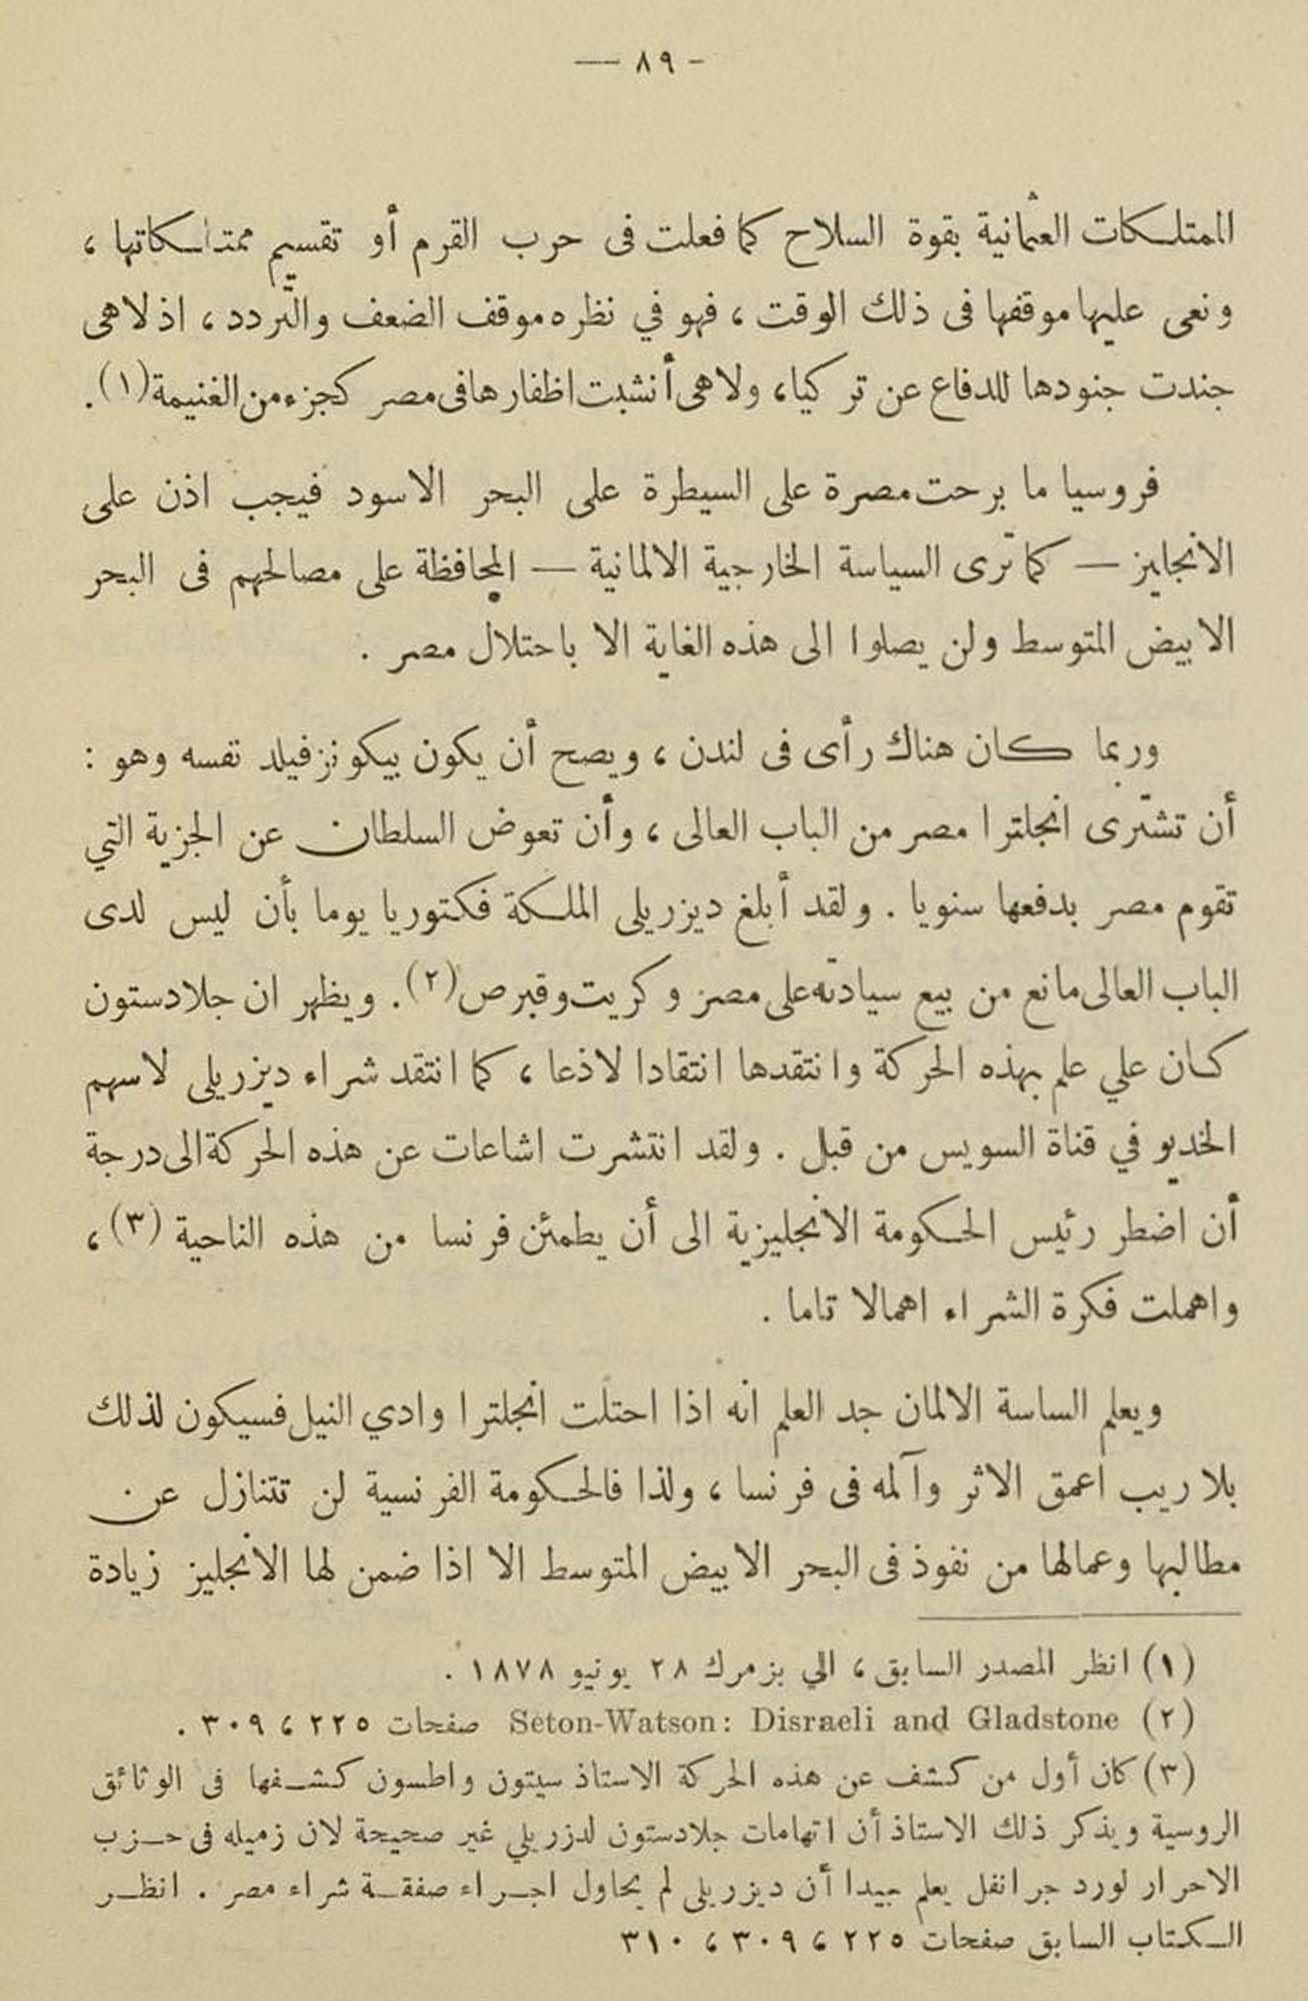 - ٨٩ —
الممتلكات العثمانية بقوة السلاح كما فعلت فى حرب القرم أو تقسيم ممتلكاتها ،
ونعى عليها موقفها فى ذلك الوقت ، فهو في نظره موقف الضعف والتردد ، اذ لا هى
جندت جنودها للدفاع عن تركيا ، ولا هى أنشبت اظفارها فى مصر كجزء من الغنيمة (١) .
فروسيا ما برحت مصرة على السيطرة على البحر الاسود فيجب اذن على
الانجليز — كما ترى السياسة الخارجية الالمانية — المحافظة على مصالحهم فى البحر
الابيض المتوسط ولن يصلوا الى هذه الغاية الا باحتلال مصر .
وربما كان هناك رأى فى لندن ، ويصح أن يكون بيكونزفيلد نفسه وهو :
أن تشترى انجلترا مصر من الباب العالى ، وأن تعوض السلطان عن الجزية التي
تقوم مصر بدفعها سنويا . ولقد أبلغ ديزريلى الملكة فكتوريا يوما بأن ليس لدى
الباب العالى مانع من بيع سيادته على مصر وكريت وقبرص (٢) . ويظهر ان جلادستون
كان علي علم بهذه الحركة وانتقدها انتقادا لاذعا ، كما انتقد شراء ديزريلى لاسهم
الخديو في قناة السويس من قبل . ولقد انتشرت اشاعات عن هذه الحركة الى درجة
أن اضطر رئيس الحكومة الانجليزية الى أن يطمئن فرنسا من هذه الناحية (٣) ،
واهملت فكرة الشراء اهمالا تاما .
ويعلم الساسة الالمان جد العلم انه اذا احتلت انجلترا وادي النيل فسيكون لذلك
بلا ريب اعمق الاثر وآلمه فى فرنسا ، ولذا فالحكومة الفرنسية لن تتنازل عن
مطالبها وعمالها من نفوذ فى البحر الابيض المتوسط الا اذا ضمن لها الانجليز زيادة
(١) انظر المصدر السابق ، الي بزمرك ٢٨ يونيو ١٨٧٨ .
(٢) Seton-Watson: Disraeli and Gladstone صفحات ٢٢٥ ، ٣٠٩ .
(٣) كان أول من كشف عن هذه الحركة الاستاذ سيتون واطسون كشفها فى الوثائق
الروسية ويذكر ذلك الاستاذ أن اتهامات جلادستون لدزريلي غير صحيحة لان زميله فى حزب
الاحرار لورد جرانفل يعلم جيدا أن ديزريلى لم يحاول اجراء صفقة شراء مصر . انظر
الكتاب السابق صفحات ٢٢٥ ، ٣٠٩ ، ٣١٠